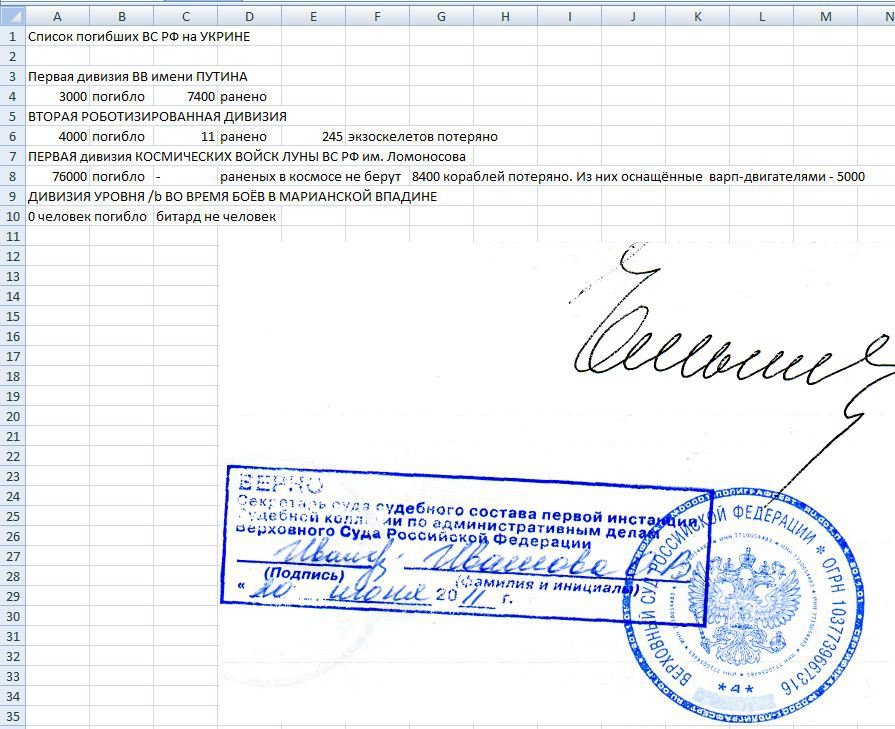 A B C D E F G H I J K L M N
1 Список погибших ВС РФ на УКРИНЕ
2
3 Первая дивизия ВВ имени ПУТИНА
4 3000 погибло 7400 ранено
5 ВТОРАЯ РОБОТИЗИРОВАННАЯ ДИВИЗИЯ
6 4000 погибло 11 ранено 245 экзоскелетов потеряно
7 ПЕРВАЯ дивизия КОСМИЧЕСКИХ ВОЙСК ЛУНЫ ВС РФ им. Ломоносова
8 76000 погибло - раненых в космосе не берут 8400 кораблей потеряно. Из них оснащённые варп-двигателями - 5000
9 ДИВИЗИЯ УРОВНЯ /b ВО ВРЕМЯ БОЁВ В МАРИАНСКОЙ ВПАДИНЕ
10 0 человек погибло битард не человек
11
12
13
14
15
16
17
18
19
20
21
22
23
24
25
26
27
28
29
30
31
32
33
34
35
ВЕРНО
Секретарь суда судебного состава первой инстанции
Судебной коллегии по административным делам
Верховного Суда Российской Федерации
Иванова С.В.
(Подпись) (фамилия и инициалы)
« 20 июня 2011 г.
ВЕРХОВНЫЙ СУД РОССИЙСКОЙ ФЕДЕРАЦИИ * ОГРН 1037739667316
*4*